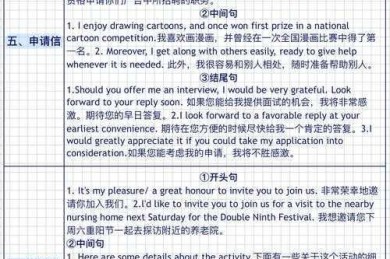 资格申请你们广告中所招聘的职务。
②中间句
1. I enjoy drawing cartoons, and once won first prize in a national
cartoon competition.我喜欢画漫画，并曾经在一次全国漫画比赛中得了第
一名。2. Moreover, I get along with others easily, ready to give help
whenever it is needed. 此外，我很容易和别人相处，随时准备帮助别人。
五、申请信
③结尾句
1.Should you offer me an interview, I would be very grateful. Look
forward to your reply soon. 如果您能给我提供面试的机会，我将非常感
激。期待您的早日答复。2.I look forward to a favorable reply at your
earliest convenience. 期待在您方便的时候尽快给我一个肯定的答复。3.I
would greatly appreciate it if you could take my application into
consideration.如果您能考虑我的申请，我将不胜感激。
①开头句
1. It's my pleasure/ a great honour to invite you to join us. 非常荣幸地邀
请你加入我们。2.I'd like to invite you to join us for a visit to the nearby
nursing home next Saturday for the Double Ninth Festival. 我想邀请您下
周六重阳节一起去探访附近的养老院。
②中间句
1. Here are some details about the activity.下面有一些关于这个活动的细